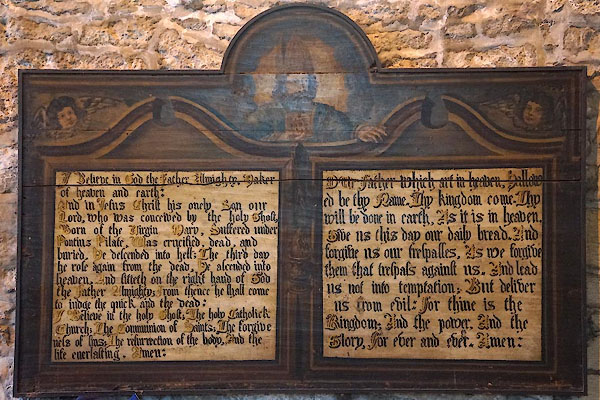 I Believe in God the Father Almighty, Maker
of heaven and earth:
And in Jesus Christ his onely Son our
Lord, who was conceived by the holy Ghost,
Born of the Virgin Mary, Suffered under
Pontius Pilate, Was crucified, dead, and
buried, He descended into hell; The third day
he rose again from the dead, He ascended into
heaven, And sitteth on the right hand of God
the Father Almighty; From thence he shall come
to iudge the quick and the dead:
I Believe in the holy Ghost; The holy Catholick
Church; The Communion of Saints; The forgive
nes of sins; The resurrection of the body, And the
life everlasting. Amen:
Our Father which art in heaven, Hallow
ed be thy Name. Thy kingdom come. Thy
will be done in earth, As it is in heaven.
Give us this day our daily bread. And
forgive us our trespasses, As we forgive
them that trespass against us. And lead
us not into temptation; But deliver
us from evil: For thine is the
Kingdom; And the power, And the
Glory, For ever and ever. Amen: